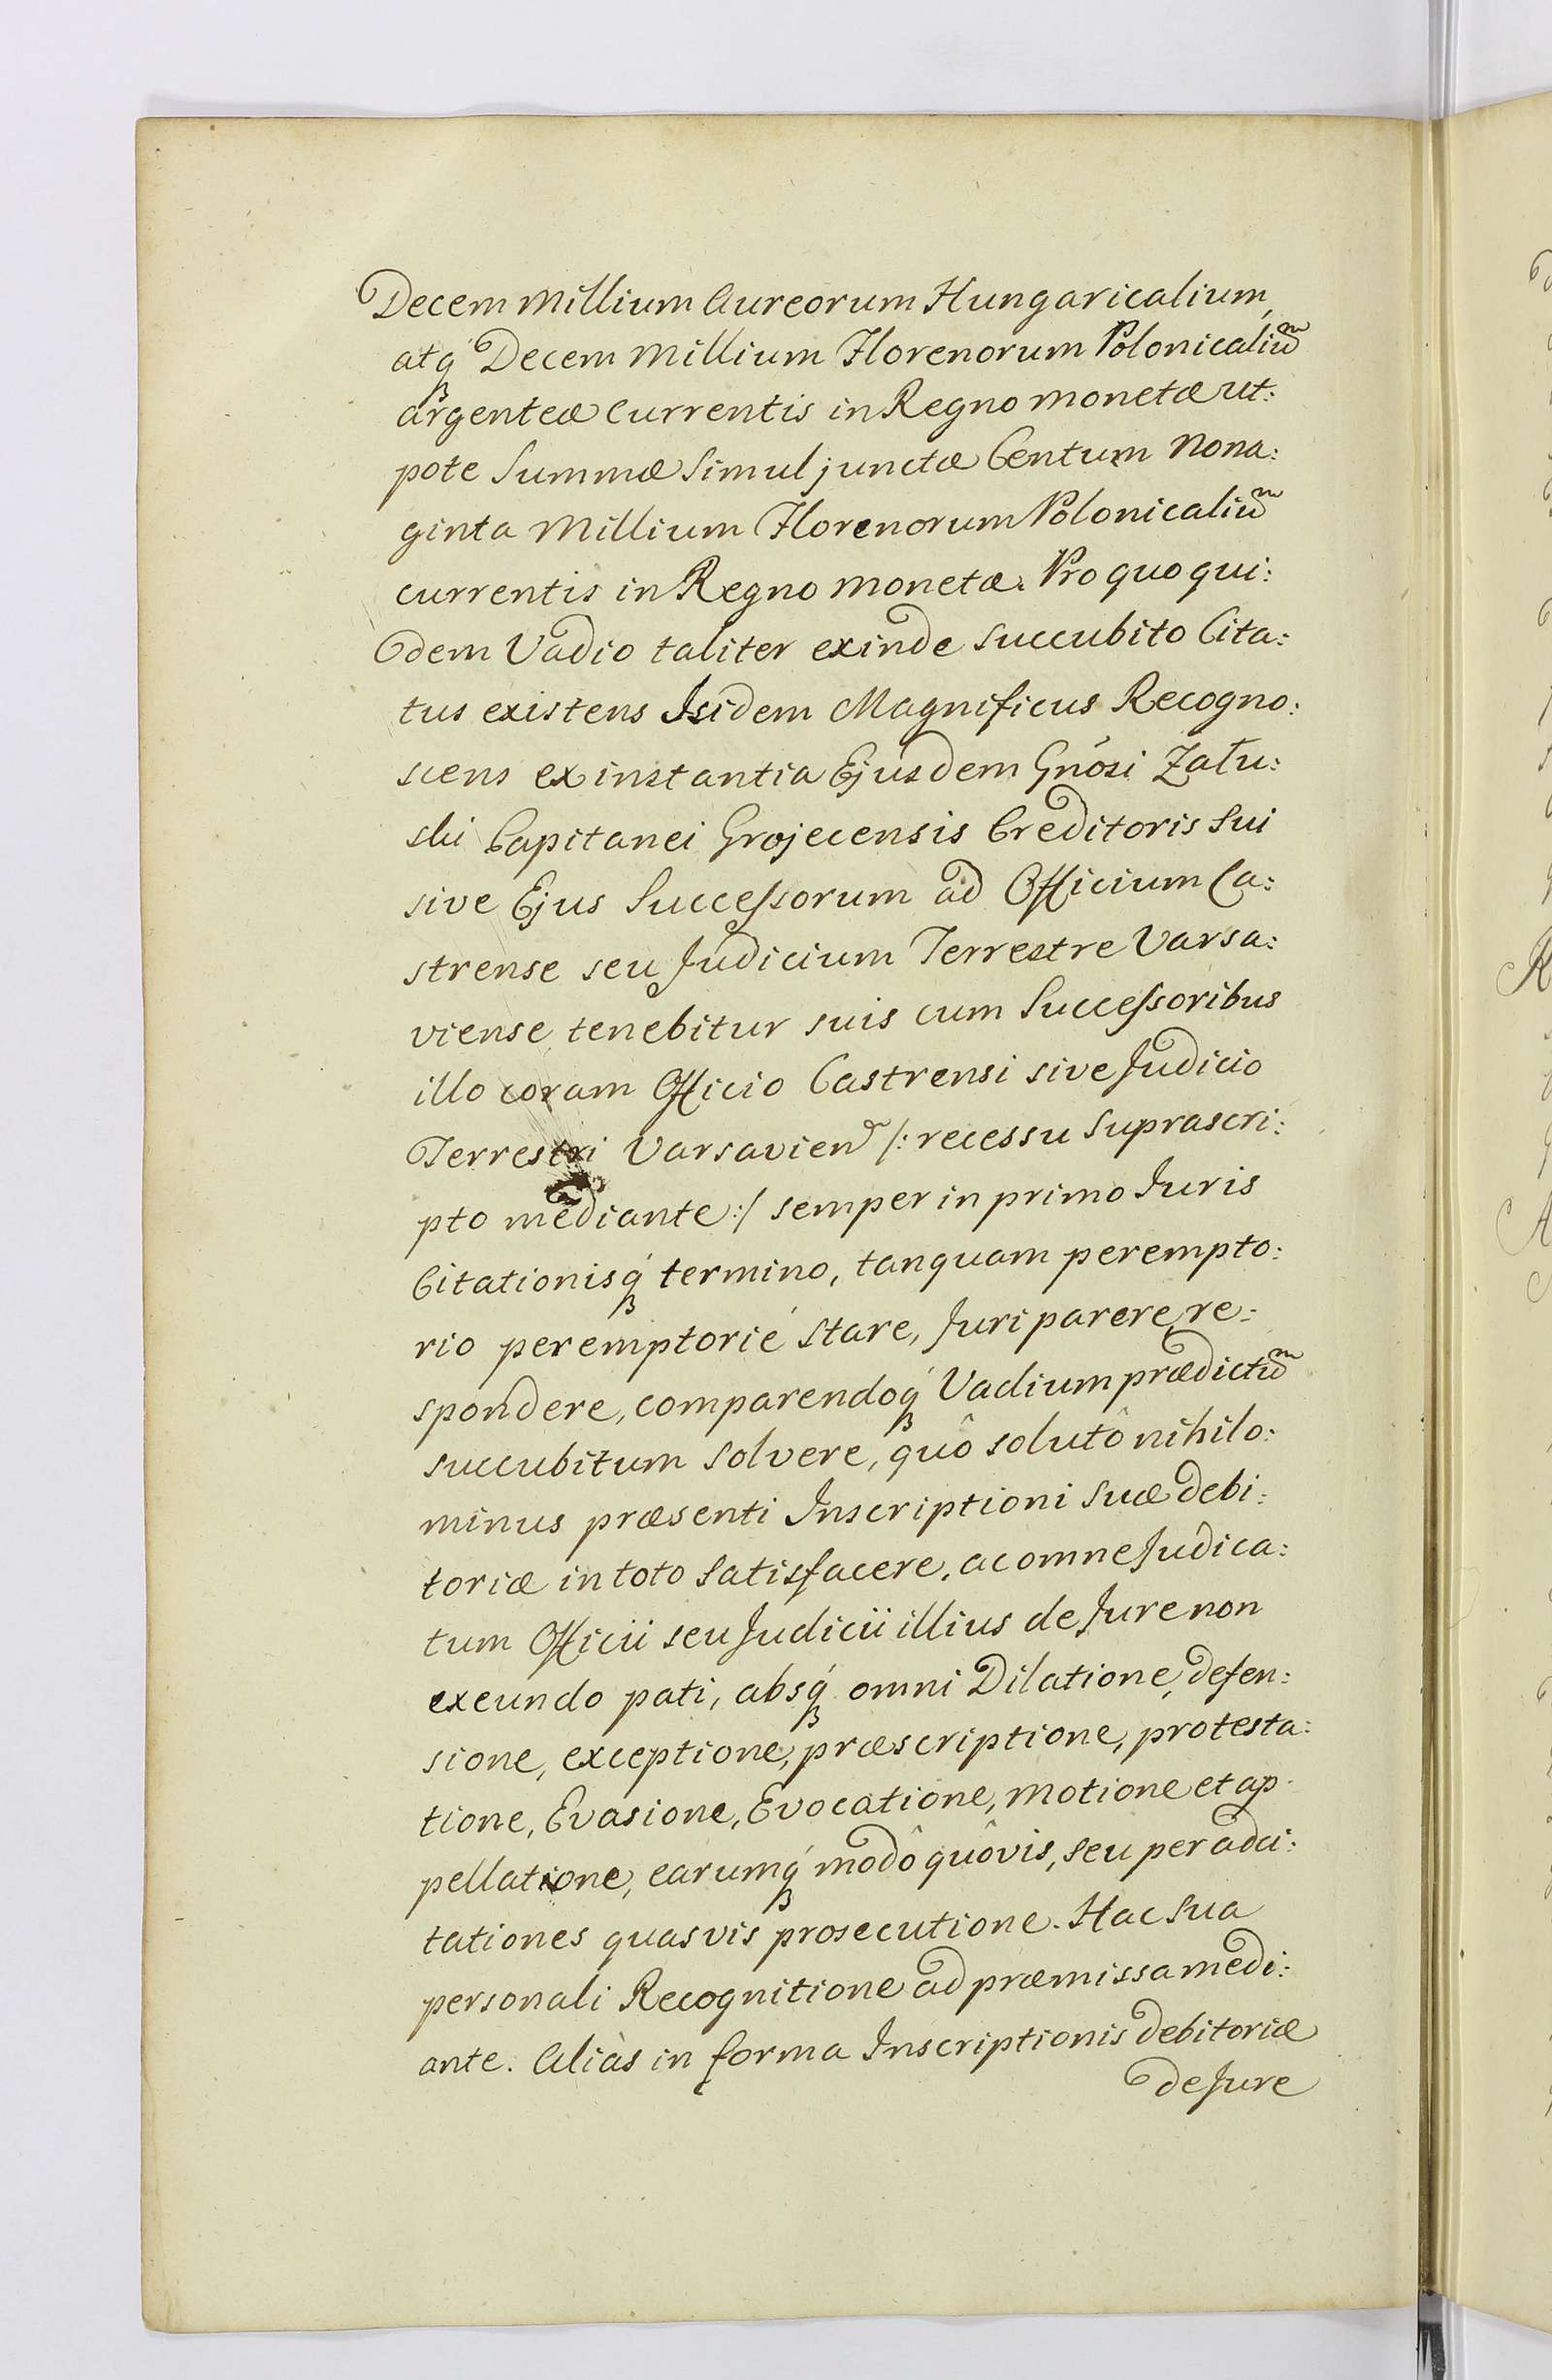 Decem Millium Aureorum Hungaricalium,
atq́ꝫ Decem Millium Florenorum Polonicaliũm
argenteæ Currentis in Regno monetæ ut:
pote Summæ Simul junctæ Centum Nona:
ginta Millium Florenorum Polonicaliũm
currentis in Regno monetæ. Pro quo qui:
dem Vadio taliter exinde succubito Cita:
tus existens Isidem Magnificus Recogno:
scens ex instantia Ejusdem Gnôsi Zału:
ski Capitanei Grojecensis Creditoris Sui
sive Ejus Successorum ad Officium Ca:
strense seu Judicium Terrestre Varsa:
viense tenebitur suis cum Successoribus
illo coram Officio Castrensi sive Judicio
Terrestri Varsavien̄ /: recessu Suprascri:
pto mediante :/ semper in primo Juris
Citationisq́ꝫ termino, tanquam perempto:
rio peremptorié stare, Juri parere, re:
spondere, comparendoq́ꝫ Vadium prædictũm
succubitum solvere, quô solutô nihilo:
minus præsenti Inscriptioni Suæ debi:
toriæ in toto Satisfacere, ac omne Judica:
tum Officii seu Judicii illius de Jure non
exeundo pati, absq́ꝫ omni Dilatione, defen:
sione, exceptione, præscriptione, protesta:
tione, Evasione, Evocatione, Motione et ap:
pellatione, earumq́ꝫ modô quôvis, seu per adci:
tationes quasvis prosecutione. Hac Sua
personali Recognitione ad præmissa medi:
ante. Aliàs in forma Inscriptionis debitoriæ
de Jure